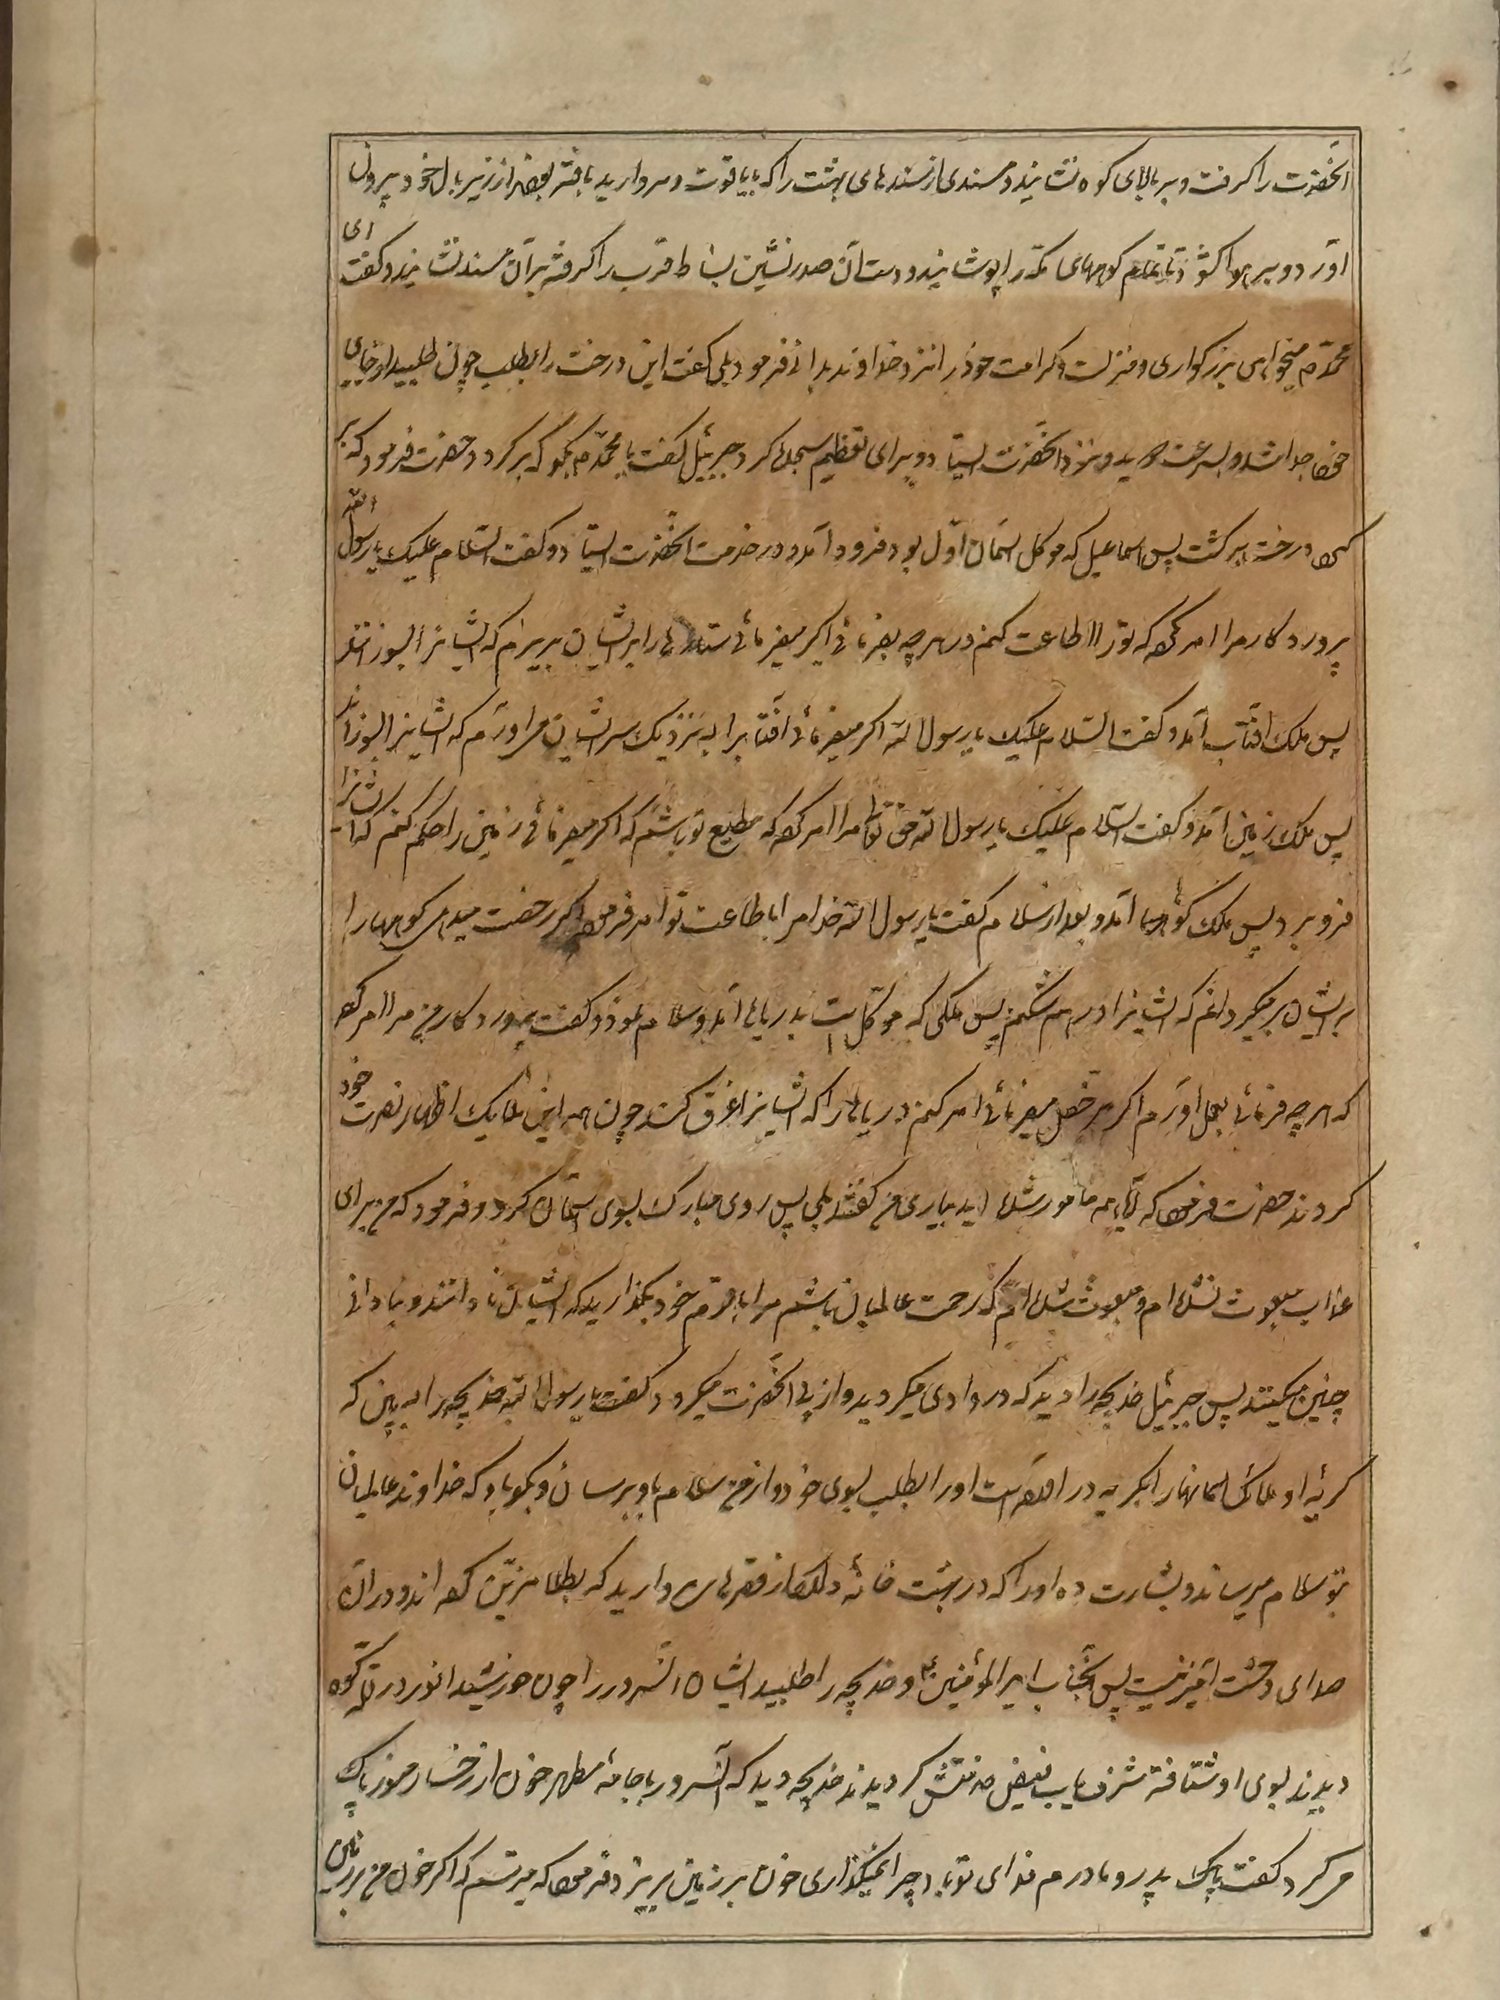 آنحضرت را کرفت و بر بالای کوه نشانید و مسندی از مسندهای بهشت را که بایاقوت و مروارید بافته بودند از زیر بال خود بیرون
آورد و بر هوا کشود تا تمام کوههای مکه را پوشانید و دست آن صدرنشین بساط قرب را کرفته بر آن مسند نشانید و کفت ای
محمد م میخواهی بزرکواری و منزلت و کرامت خود را نزد خداوند بدانی فرمود بلی کفت این درخت را بطلب چون طلبید از جای
خود جدا شد و بسرعت دوید و نزد آنحضرت ایستاد و برای تعظیم سجده کرد جبرئیل کفت یا محمد م بکو که برکردد حضرت فرمود که بر
کرد درخت برکشت پس اسماعیل که موکل آسمان اول بود فرود آمد و در خدمت آنحضرت ایستاد و کفت السلام علیک یا رسول الله
پروردکار مرا امر کرده که تو را اطاعت کنم در هر چه بفرمائی اکر میفرمائی ستاره ها را بر ایشان بریزم که ایشانرا بسوزانند
پس ملک آفتاب آمد و کفت السلام علیک یا رسول الله اکر میفرمائی آفتابرا به نزدیک سر ایشان می آورم که ایشانرا بسوزاند
پس ملک زمین آمد و کفت السلام علیک یا رسول الله حق تعالی مرا امر کرده که مطیع تو باشم که اکر میفرمائی زمین را حکم کنم که ایشانرا
فرو برد پس ملک کوهها آمد و بعد از سلام کفت یا رسول الله خدا مرا باطاعت تو امر فرموده اکر رخصت میدهی کوهها را
بر ایشان برمیکردانم که ایشانرا درهم شکنم پس ملکی که موکل است بدریاها آمد و سلام نمود و کفت پروردکار من مرا امر کرده
که هر چه فرمائی بعمل آورم اکر مرخص میفرمائی امر کنم دریاها را که ایشانرا غرق کند چون همه این ملایک اظهار نصرت خود
کردند حضرت فرمود که آیا همه مامور شده اید بیاری من کفتند بلی پس روی مبارک بسوی آسمان کرد و فرمود که من برای
عذاب مبعوث نشده ام و مبعوث شده ام که رحمت عالمیان باشم مرا با قوم خود بکذارید که ایشان نادانند و بنادانی
چنین میکنند پس جبرئیل خدیجه را دید که در وادی میکردید و از پی آنحضرت میکردد کفت یا رسول الله خدیجه را به بین که
کریه او ملائکه آسمانها را بکریه در آورده است او را بطلب بسوی خود و از من سلام باو برسان و بکو باو که خداوند عالمیان
تو سلام میرساند و بشارت ده او را که در بهشت خانه دارد از قصرهای مروارید که بطلا مزین کرده اند و در آن
صدای وحشت آمیز نیست پس آنجناب امیرالمؤمنین ع و خدیجه را طلبید ایشان آنسرور را چون خورشید انور در قله کوه
دیدند بسوی او شتافته شرف یاب فیض خدمتش کردیدند خدیجه دید که آنسرور با جامه مطهر خون از رخسار منور پاک
می کرد کفت پدر و مادرم فدای تو باد چرا نمیکذاری خون بر زمین بریزد فرمود که میترسم که اکر خون من بر زمین